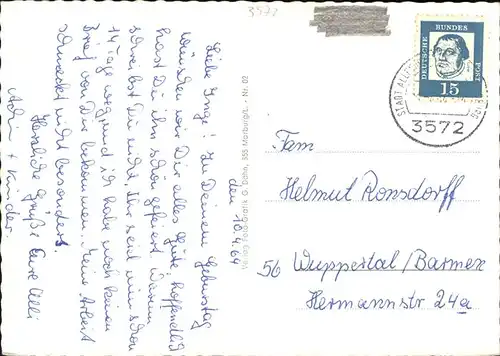 3572
den 10.4.64
Liebe Inge! Zu Deinem Geburtstag
wünschen wir Dir alles Gute, hoffentlich
hast Du ihn schön gefeiert. Warum
schreibst Du nicht, Ihr seid nun schon
14 Tage weg und ich habe noch keinen
Brief von Dir bekommen. Meine Arbeit
schmeckt nicht besonders.
Herzliche Grüße Eure Elli
+ Kinder.
Verlag Foto-Grafik G. Bohn, 355 Marburg/L. · Nr. 02
DEUTSCHE
BUNDES
POST
15
STADT ALLENDORF
3572
Fam
Helmut Ronsdorff
56 Wuppertal/Barmen
Hermannstr 24a